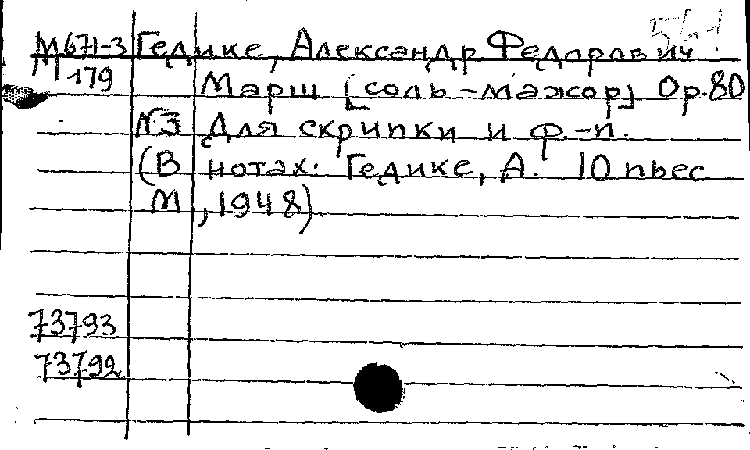 М671-3 Гедике, Александр Федорович.
М179 Марш [соль-мажор] Ор.80
N3 Для скрипки и ф.-п.
(В нотах: Гедике, А. 10 пьес
М, 1948)
73793
73792